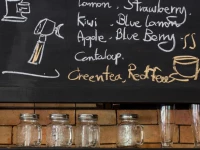 Lemon, Strawberry,
Kiwi, Blue Lemon
Apple, Blue Berry
Cantaloup.
Greentea, Red Tea